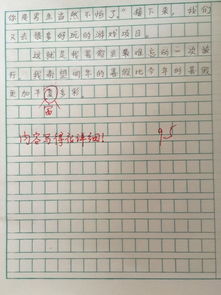 你是男生当然不怕了。”接下来，我们
又去很多好玩的游戏项目。
这就是我暑假里最难忘的一次旅
行，我希望明年的暑假比今年的暑假
更加丰富多彩。
富
内容写得很详细！ 95